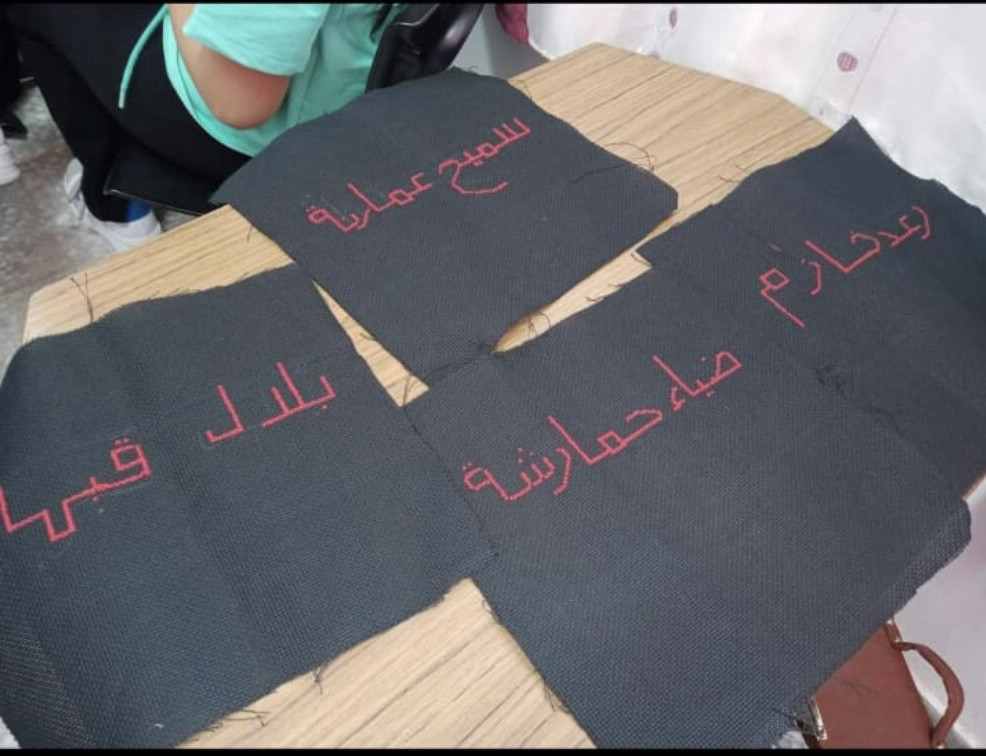 سميح عمارنة
رعد خازم
ضياء حمارشة
بلال قبها